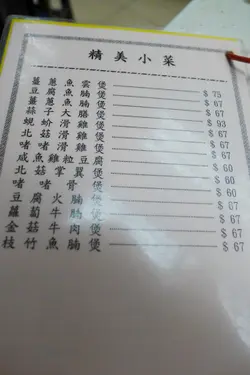 精美小菜
薑蔥魚雲煲 $75
豆腐魚腩煲 $67
薑蔥魚腩煲 $67
蒜子大鱔煲 $93
蜆蚧滑雞煲 $67
北菇滑雞煲 $67
啫啫滑雞煲 $67
咸魚雞粒豆腐 $60
北菇掌翼煲 $60
啫啫骨煲 $60
豆腐火腩煲 $67
蘿蔔牛腩煲 $67
金菇牛肉煲 $67
枝竹魚腩煲 $67